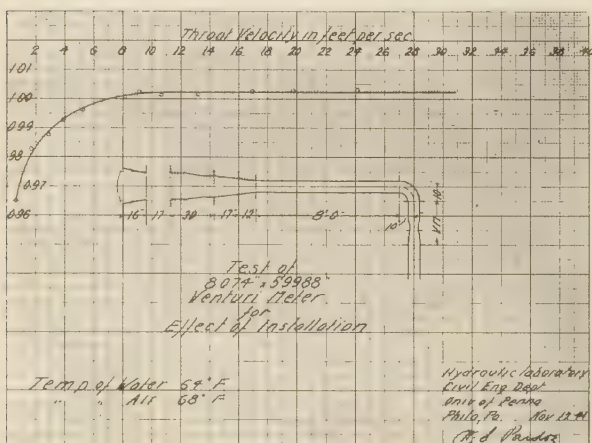 Throat Velocity in feet per sec
2 4 6 8 10 12 14 16 18 20 22 24 26 28 30 32 34 36 38 40
1.01
1.00
0.99
.98
0.97
0.96
16" 17" 30" 17" 12" 8'-0" 10"
Test of
8.074" x 5.9988"
Venturi Meter
for
Effect of Installation
Temp of Water 64° F
" " Air 68° F
Hydraulic laboratory
Civil Eng Dept
Univ of Penna
Phila, Pa. Nov 12
W. S. Pardoe